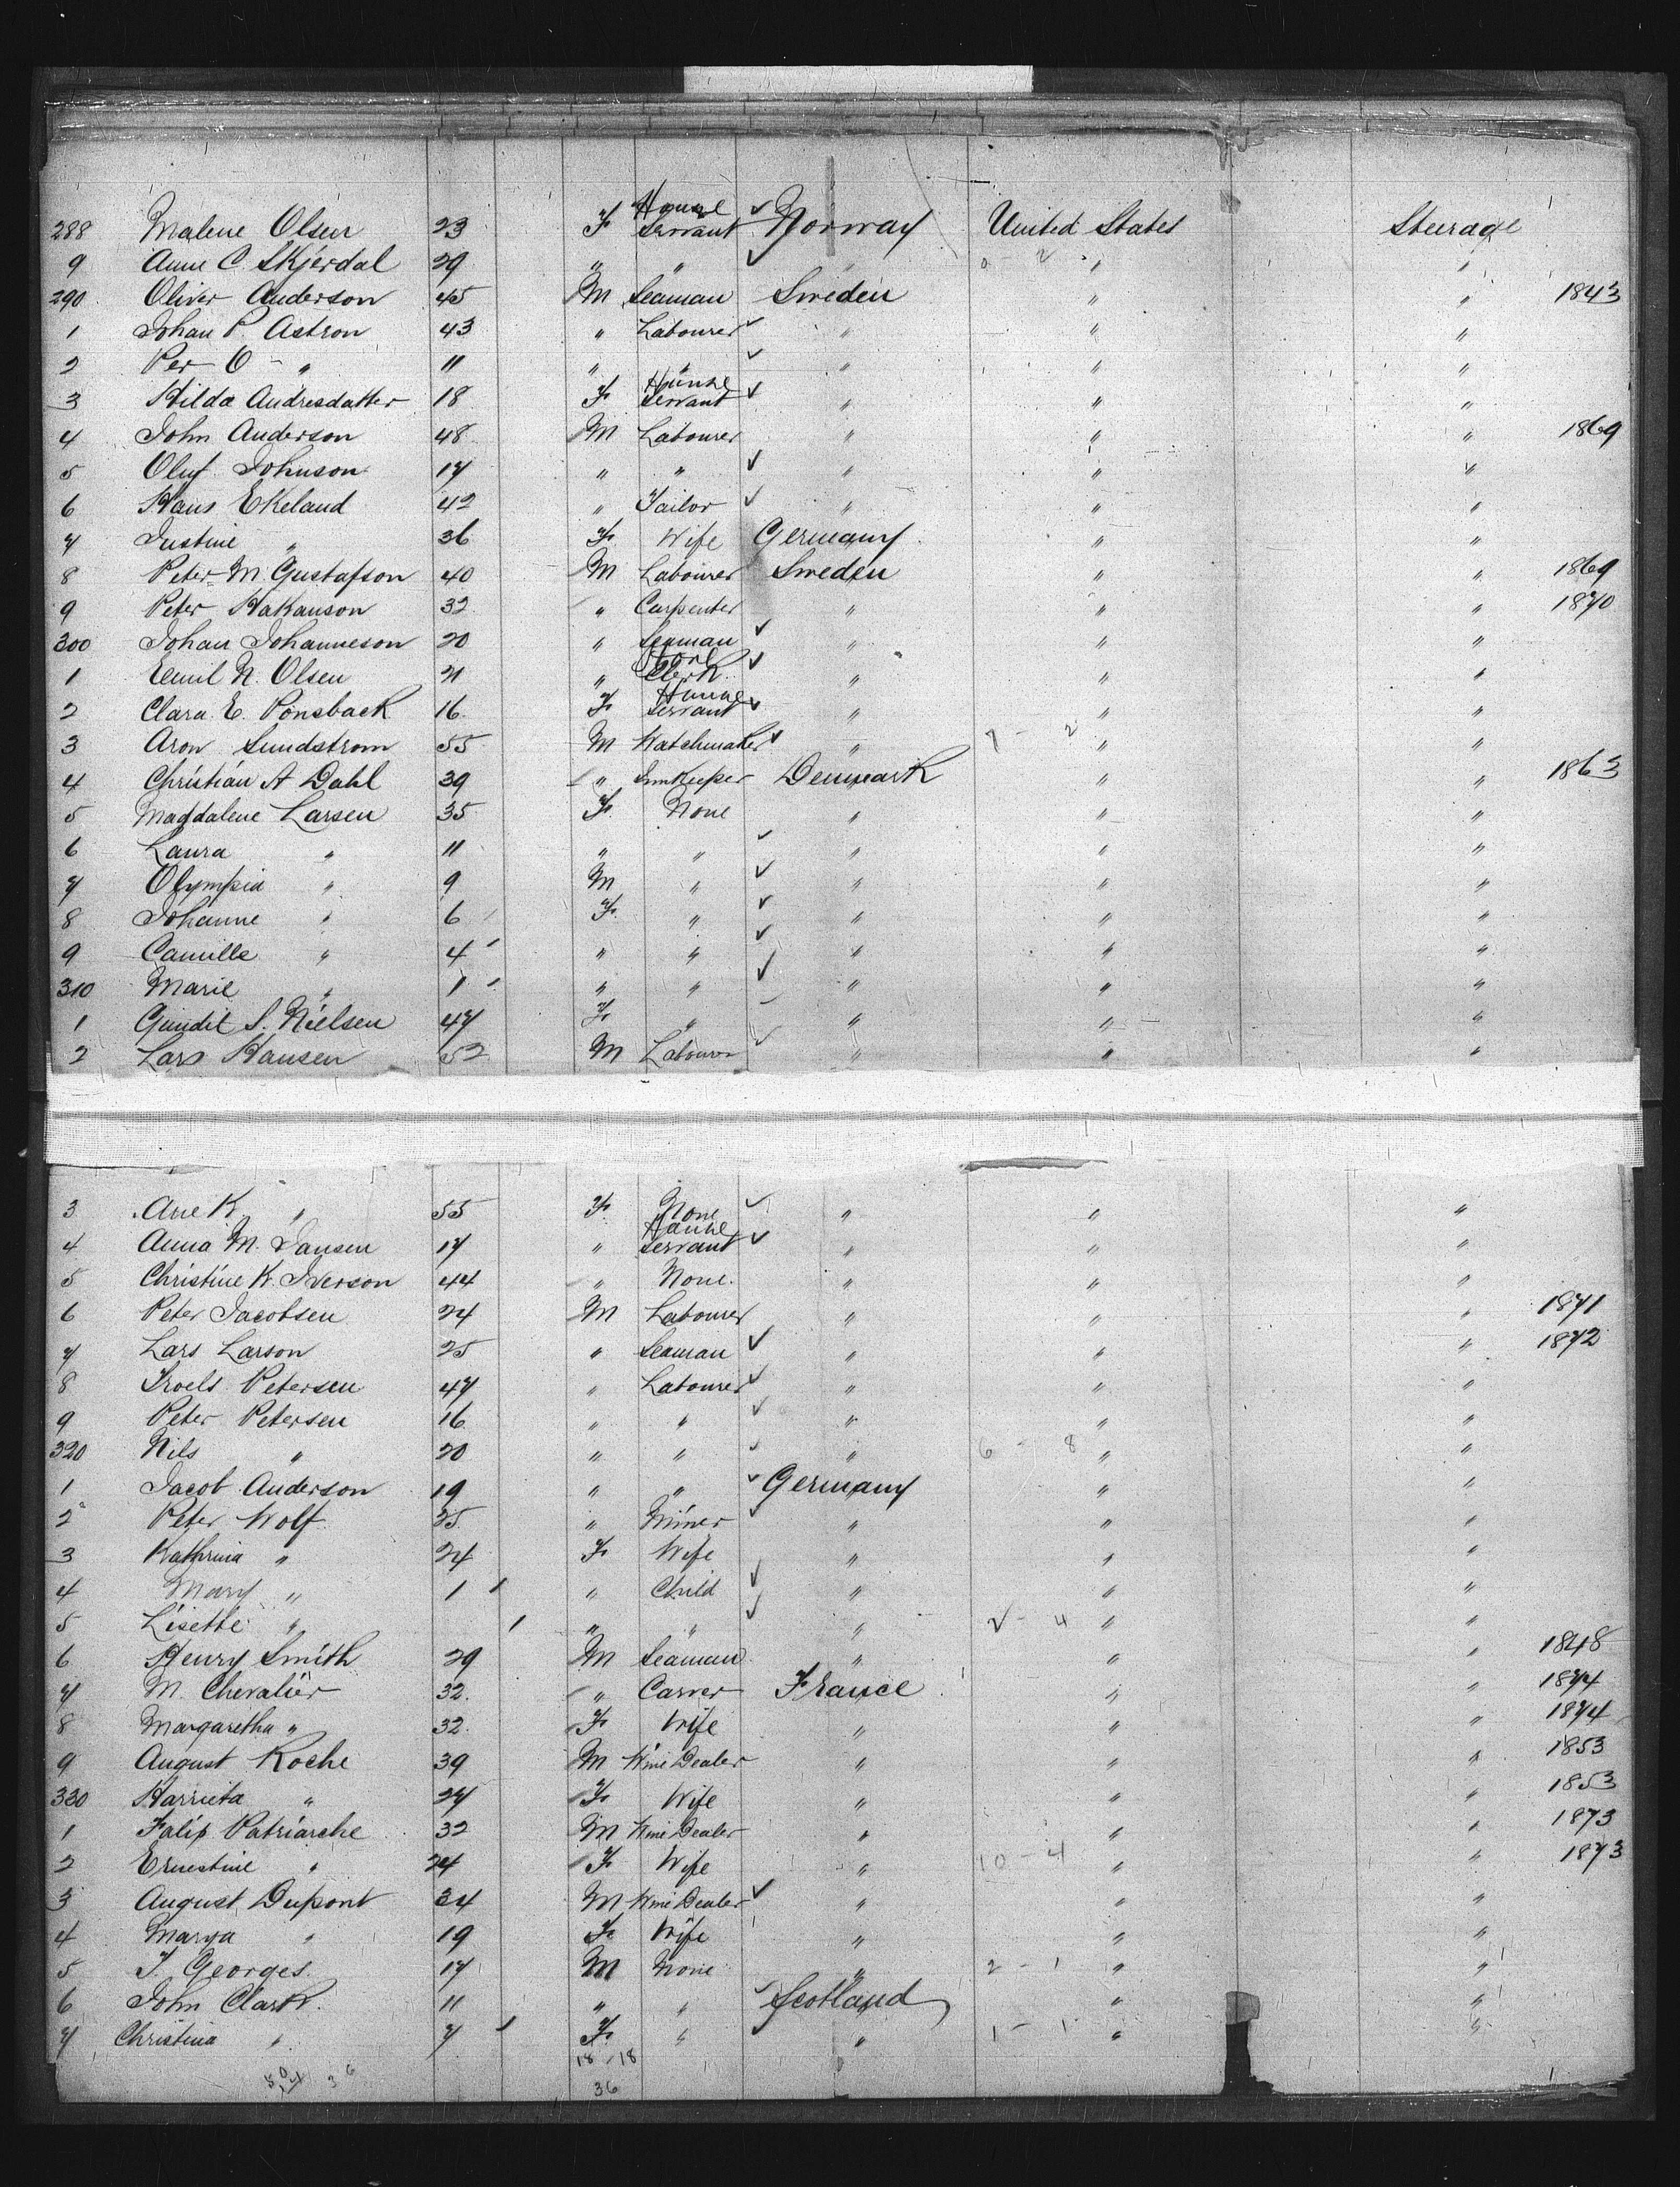 288 Malene Olsen 23 F House Servant ✓ Norway United States Steerage
9 Anne C. Skjerdal 29 " " ✓ " 0 - 2 " "
290 Oliver Anderson 45 M Seaman Sweden " " 1843
1 Johan P. Astron 43 " Labourer ✓ " " "
2 Per O - " 11 " " ✓ " " "
3 Hilda Andresdatter 18 F House Servant ✓ " " "
4 John Anderson 48 M Labourer " " " 1869
5 Oluf Johnson 17 " " ✓ " " "
6 Hans Ekeland 42 " Tailor ✓ " " "
7 Justine " 36 F Wife Germany " "
8 Peter M. Gustafson 40 M Labourer Sweden " " 1869
9 Peter Hakanson 32 " Carpenter " " " 1870
300 Johan Johanneson 20 " Seaman ✓ " " "
1 Emil N. Olsen 21 " Clerk ✓ " " "
2 Clara E. Ponsback 16 F House Servant ✓ " " "
3 Aron Sundstrom 55 M Watchmaker ✓ " 7 - 2 " "
4 Christian A Dahl 39 " Innkeeper Denmark " " 1863
5 Magdalene Larsen 35 F None " " "
6 Laura " 11 " " ✓ " " "
7 Olympia " 9 M " ✓ " " "
8 Johanne " 6 F " ✓ " " "
9 Camille " 4 " " ✓ " " "
310 Marie " 1 " " ✓ " " "
1 Gundil S. Nielsen 47 F " ✓ " " "
2 Lars Hansen 52 M Labourer ✓ " " "
3 Ane K. " 55 F None ✓ " " "
4 Anna M. Jansen 17 " House Servant ✓ " " "
5 Christine K. Iverson 44 " None. " " "
6 Peter Jacobsen 24 M Labourer " " " 1871
7 Lars Larson 25 " Seaman ✓ " " " 1872
8 Troels Petersen 47 " Labourer ✓ " " "
9 Peter Petersen 16 " " ✓ " " "
320 Nils " 20 " " ✓ " 6 - 8 " "
1 Jacob Anderson 19 " " ✓ Germany " "
2 Peter Wolf 25 " Miner ✓ " " "
3 Kathrina " 24 F Wife " " "
4 Mary " 1 " Child ✓ " " "
5 Lisette " 1 " " ✓ " 2 - 4 " "
6 Henry Smith 29 M Seaman " " " 1848
7 M. Chevalier 32 " Carver France " " 1874
8 Margaretha " 32 F Wife " " " 1874
9 August Roche 39 M Wine Dealer " " " 1853
330 Harrieta " 27 F Wife " " " 1853
1 Falip Patriarche 32 M Wine Dealer " " " 1873
2 Ernestine " 24 F Wife " 10 - 4 " " 1873
3 August Dupont 34 M Wine Dealer ✓ " " "
4 Marya " 19 F Wife " " "
5 J. Georges 17 M None " 2 - 1 " "
6 John Clark 11 " " ✓ Scotland " "
7 Christina " 7 F " " 1 - 1 " "
18 / 18
36 36